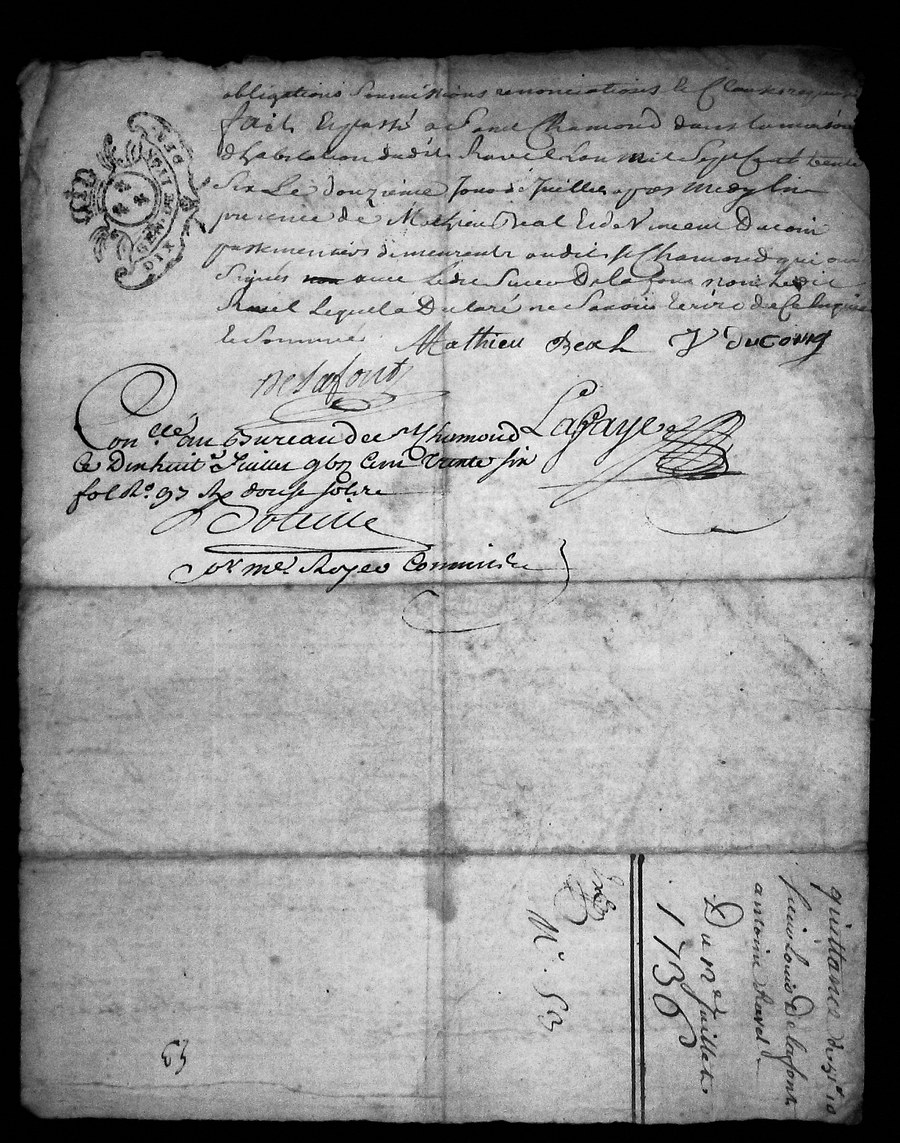 obligations soumissions renonciations & Clauses
fait & passé a Saint Chamond dans la maison
d'habitation dudit Ravel Lan mil Sept Cent trente
Six Le douzieme Jour de Juillet apres midy En
presence de Mathieu Real & de Vincent Ducoin
passementiers demeurants audit St Chamond qui ont
Signés avec Ledit Sieur Delafont non Ledit
Ravel Lequel a Declaré ne Savoir Ecrire de Ce Enquis
& Sommé Mathieu Real V Ducoing
Delafont
Lafaye
Con.lé au Bureau de St Chamond
Ce Dixhuit.e Juillet Cent trente six
fol Ro. 97 Rx douse sols
pour me Royer Commis
quittance de
sieur Louis Delafont
antoine Ravel
Du 12e Juillet
1736
N°. 53
53